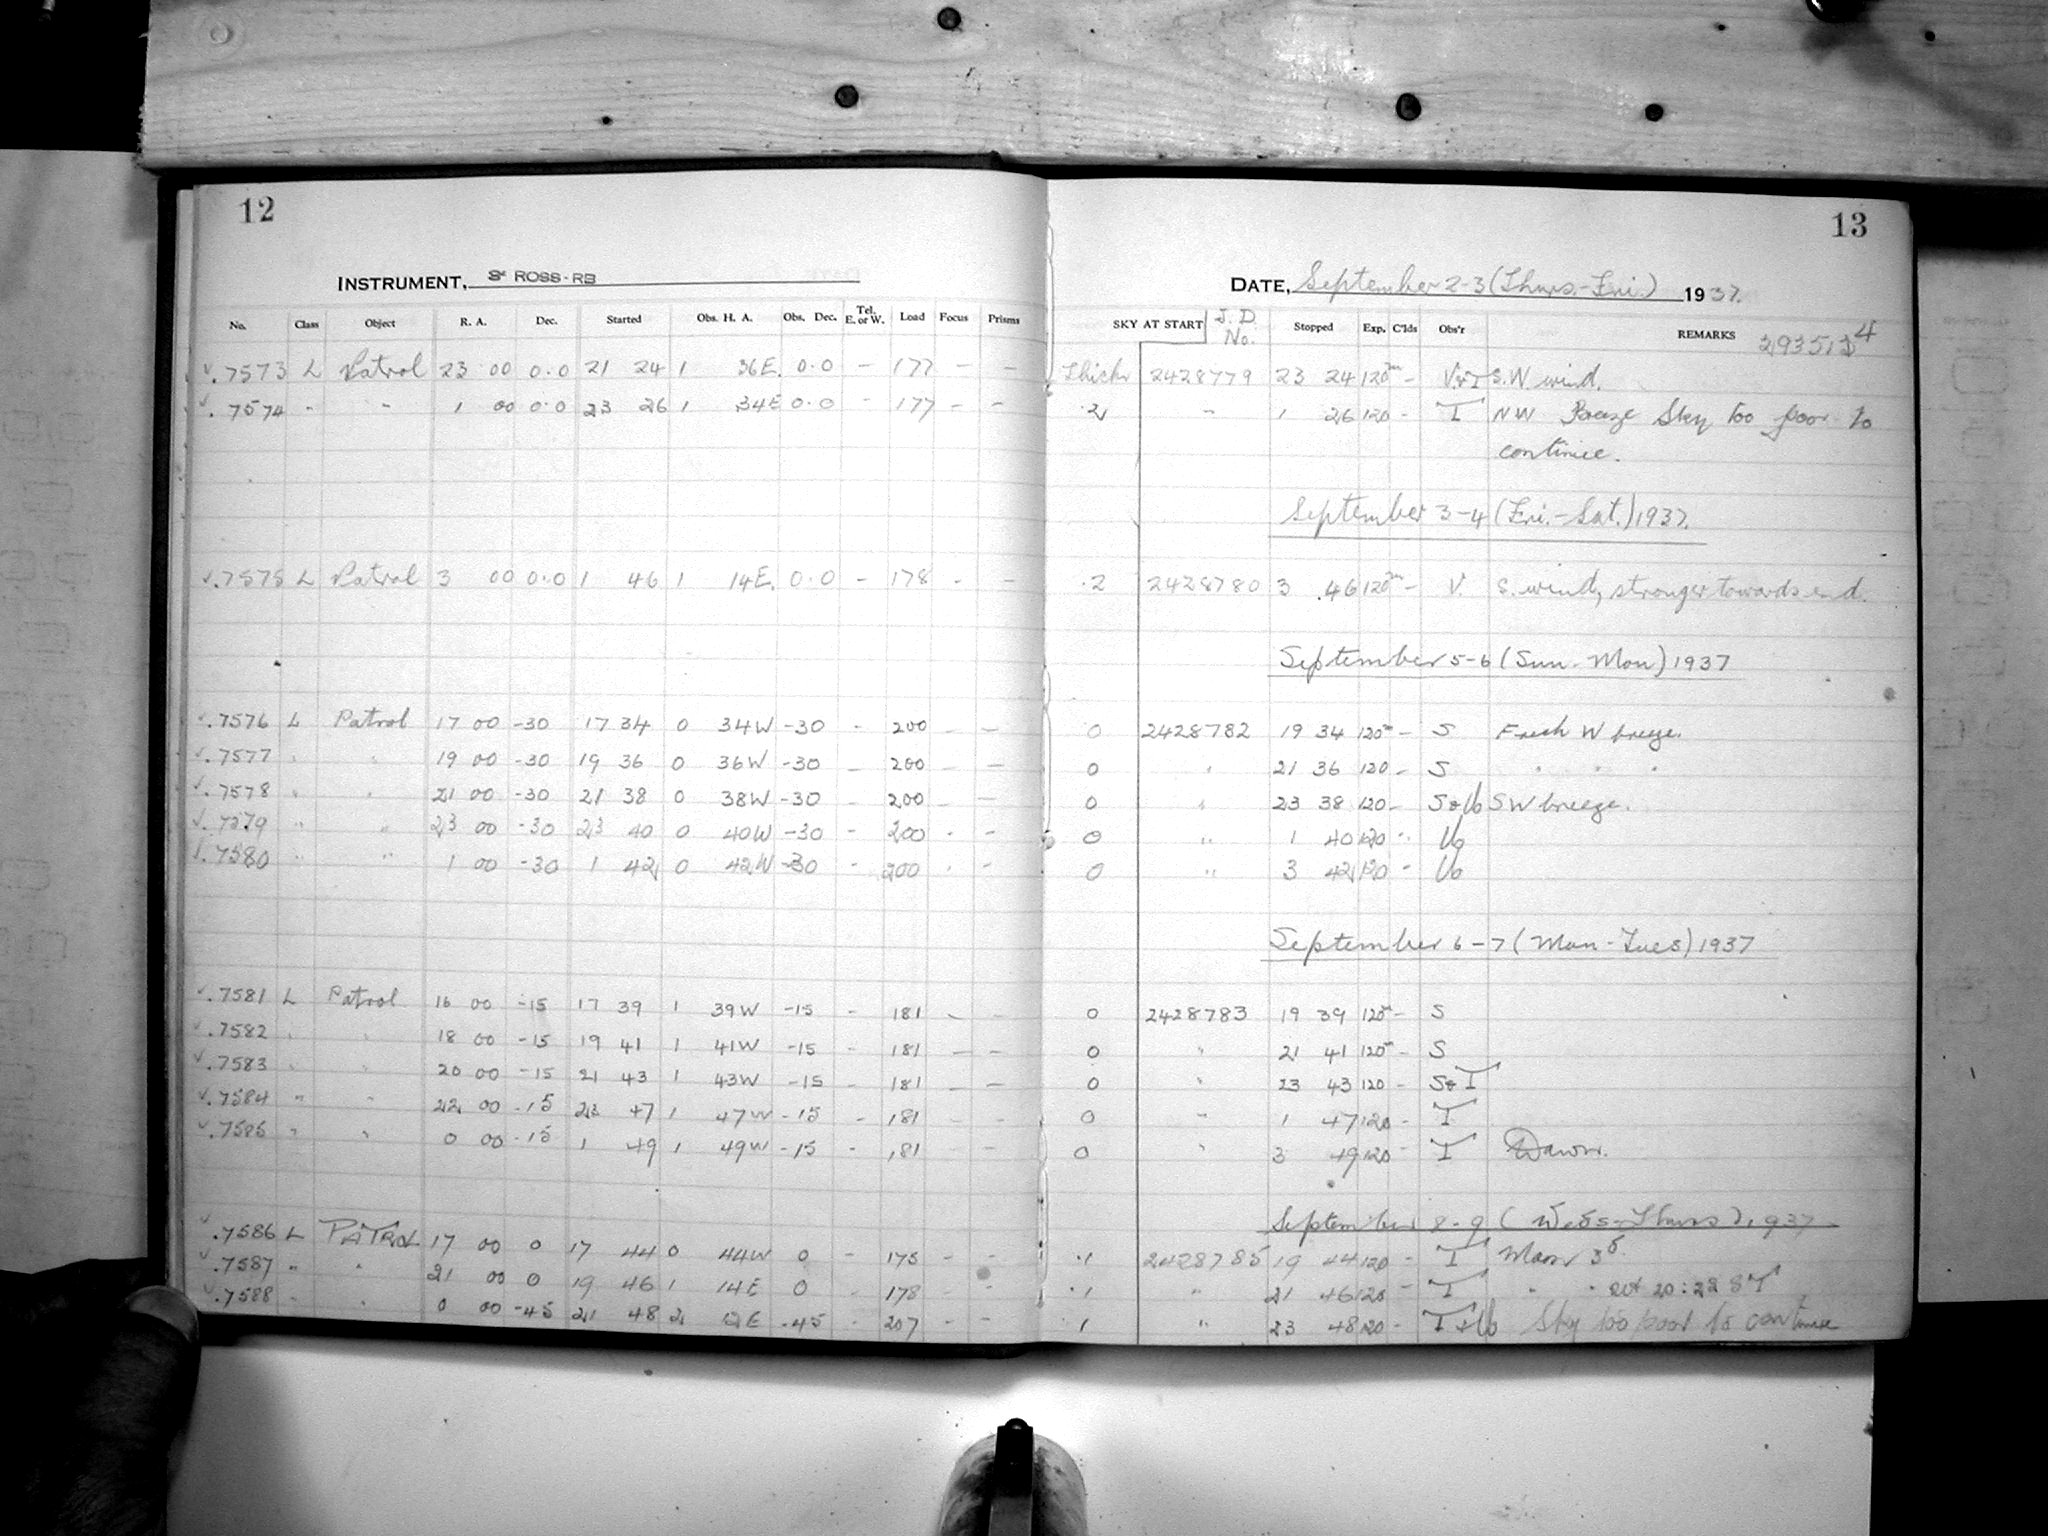 12
INSTRUMENT, ROSS-RB
No. Class Object R. A. Dec. Started Obs. H. A. Obs. Dec. Tel. E. or W. Load Focus Prisms
.7573 L Patrol 23 00 0.0 21 24 1 36E. 0.0 – 177 – –
.7574 " " 1 00 0.0 23 26 1 34E 0.0 – 177 – –
.7575 L Patrol 3 00 0.0 1 46 1 14E. 0.0 – 178 – –
.7576 L Patrol 17 00 -30 17 34 0 34W -30 – 200 – –
.7577 " " 19 00 -30 19 36 0 36W -30 – 200 – –
.7578 " " 21 00 -30 21 38 0 38W -30 – 200 – –
.7579 " " 23 00 -30 23 40 0 40W -30 – 200 - –
.7580 " " 1 00 -30 1 42 0 42W -30 – 200 - –
.7581 L Patrol 16 00 -15 17 39 1 39W -15 – 181 – –
.7582 " " 18 00 -15 19 41 1 41W -15 – 181 – –
.7583 " " 20 00 -15 21 43 1 43W -15 – 181 – –
.7584 " " 22 00 -15 23 47 1 47W -15 – 181 – –
.7585 " " 0 00 -15 1 49 1 49W -15 – 181 – –
.7586 L PATROL 17 00 0 17 44 0 44W 0 – 175 – –
.7587 " " 21 00 0 19 46 1 14E 0 – 178 –
.7588 " " 0 00 -45 21 48 2 12E -45 – 207 – –
13
DATE, September 2-3 (Thurs.-Fri.) 1937.
SKY AT START J. D. No. Stopped Exp. C'lds Obs'r REMARKS
Thick 2428779 23 24 120m – V&T S.W. wind.
.2 " 1 26 120 – T NW Breeze Sky too poor to
continue.
September 3-4 (Fri.-Sat.) 1937.
.2 2428780 3 46 120m – V. S. wind, stronger towards end.
September 5-6 (Sun.-Mon) 1937
0 2428782 19 34 120m – S Fresh W breeze.
0 " 21 36 120 – S " " "
0 " 23 38 120 – S&Vo SW breeze.
0 " 1 40 120 - Vo
0 " 3 42 120 – Vo
September 6-7 (Mon-Tues) 1937
0 2428783 19 39 120m – S
0 " 21 41 120m – S
0 " 23 43 120 – S&T
0 " 1 47 120 – T
0 " 3 49 120 – T Dawn.
September 8-9 (Weds-Thurs), 1937
.1 2428785 19 44 120 – T Moon 3d.
.1 " 21 46 120 – T " " set 20:22 ST
.1 " 23 48 120 – T&Vo Sky too poor to continue